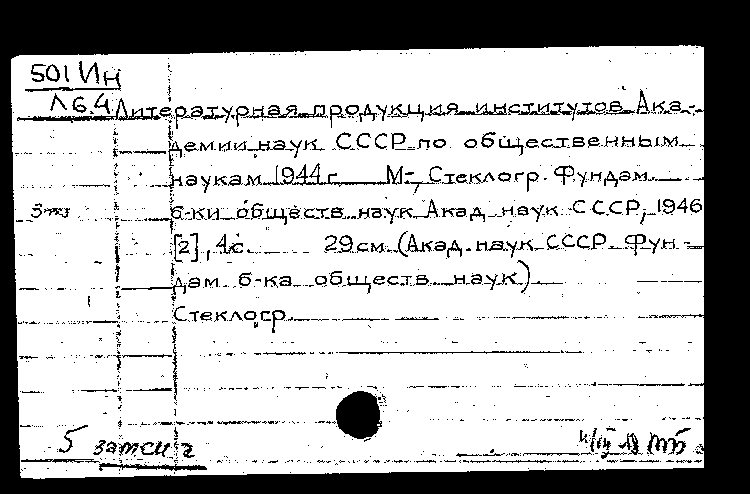 501 Ин
Л 6.4 Литературная продукция институтов Ака-
демии наук СССР по общественным
наукам 1944 г. М., Стеклогр. Фундам.
3
б-ки обществ наук Акад. наук СССР, 1946
[2], 4 с. 29 см. (Акад. наук СССР. Фун-
дам. б-ка обществ наук).
Стеклогр.
5